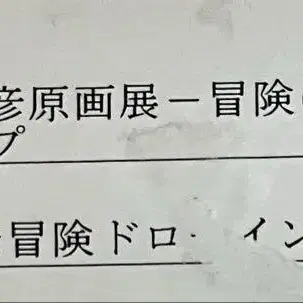 彦原画展－冒険
プ
冒険ドロ イン